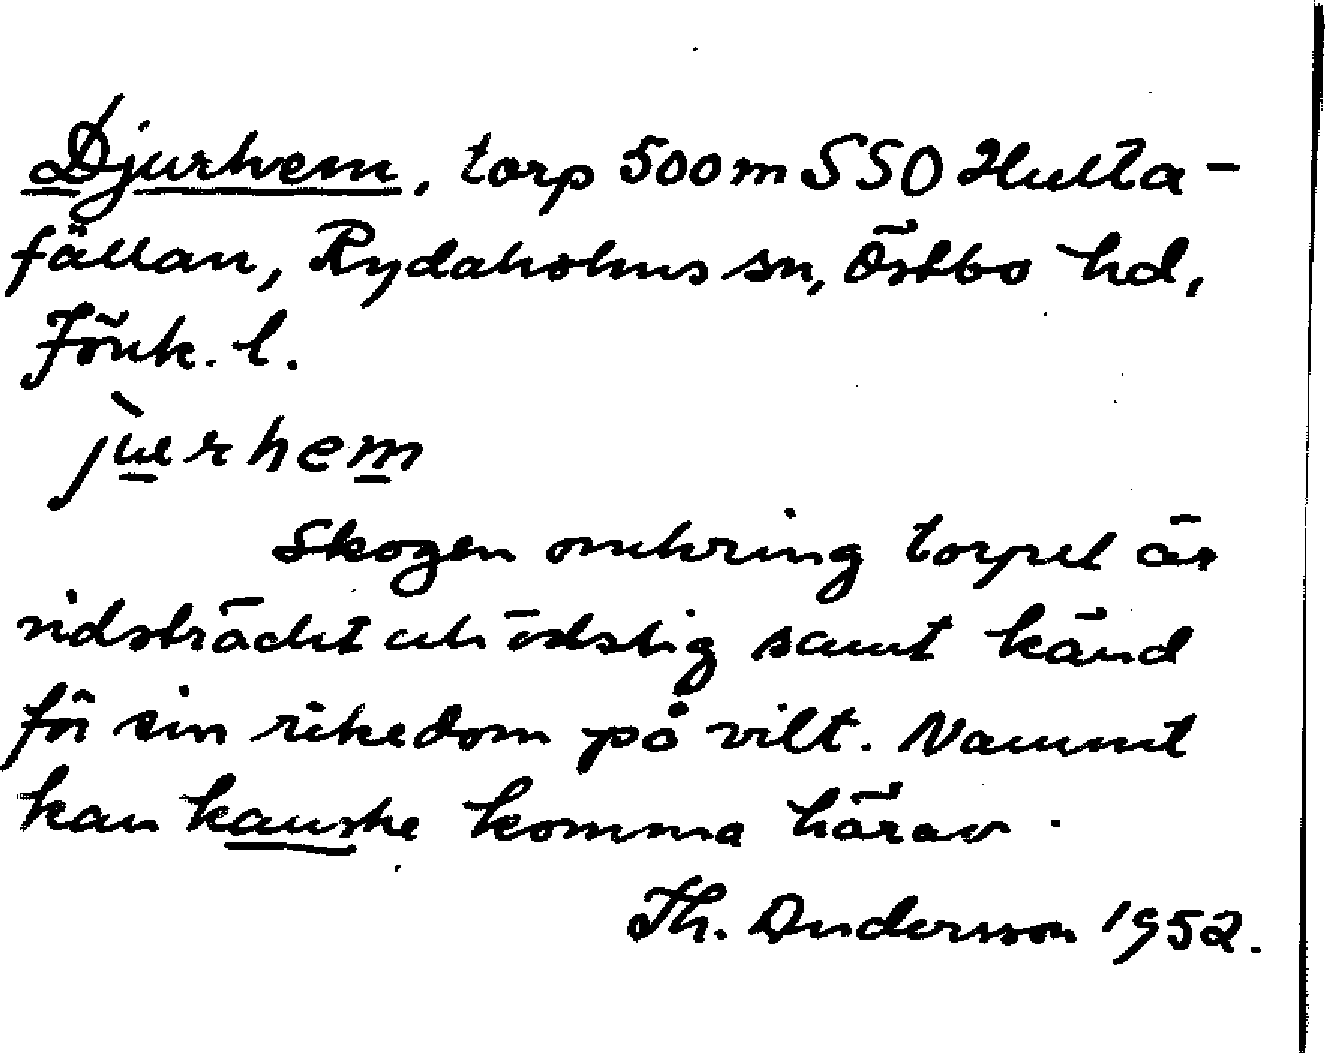 Djurhem, torp 500 m SSO Hulta-
fällan, Rydaholms sn, Östbo hd,
Jönk. l.
jùrhem
Skogen omkring torpet är
vidsträckt och ödslig samt känd
för sin rikedom på vilt. Namnet
kan kanske komma härav.
Th. Andersson 1952.